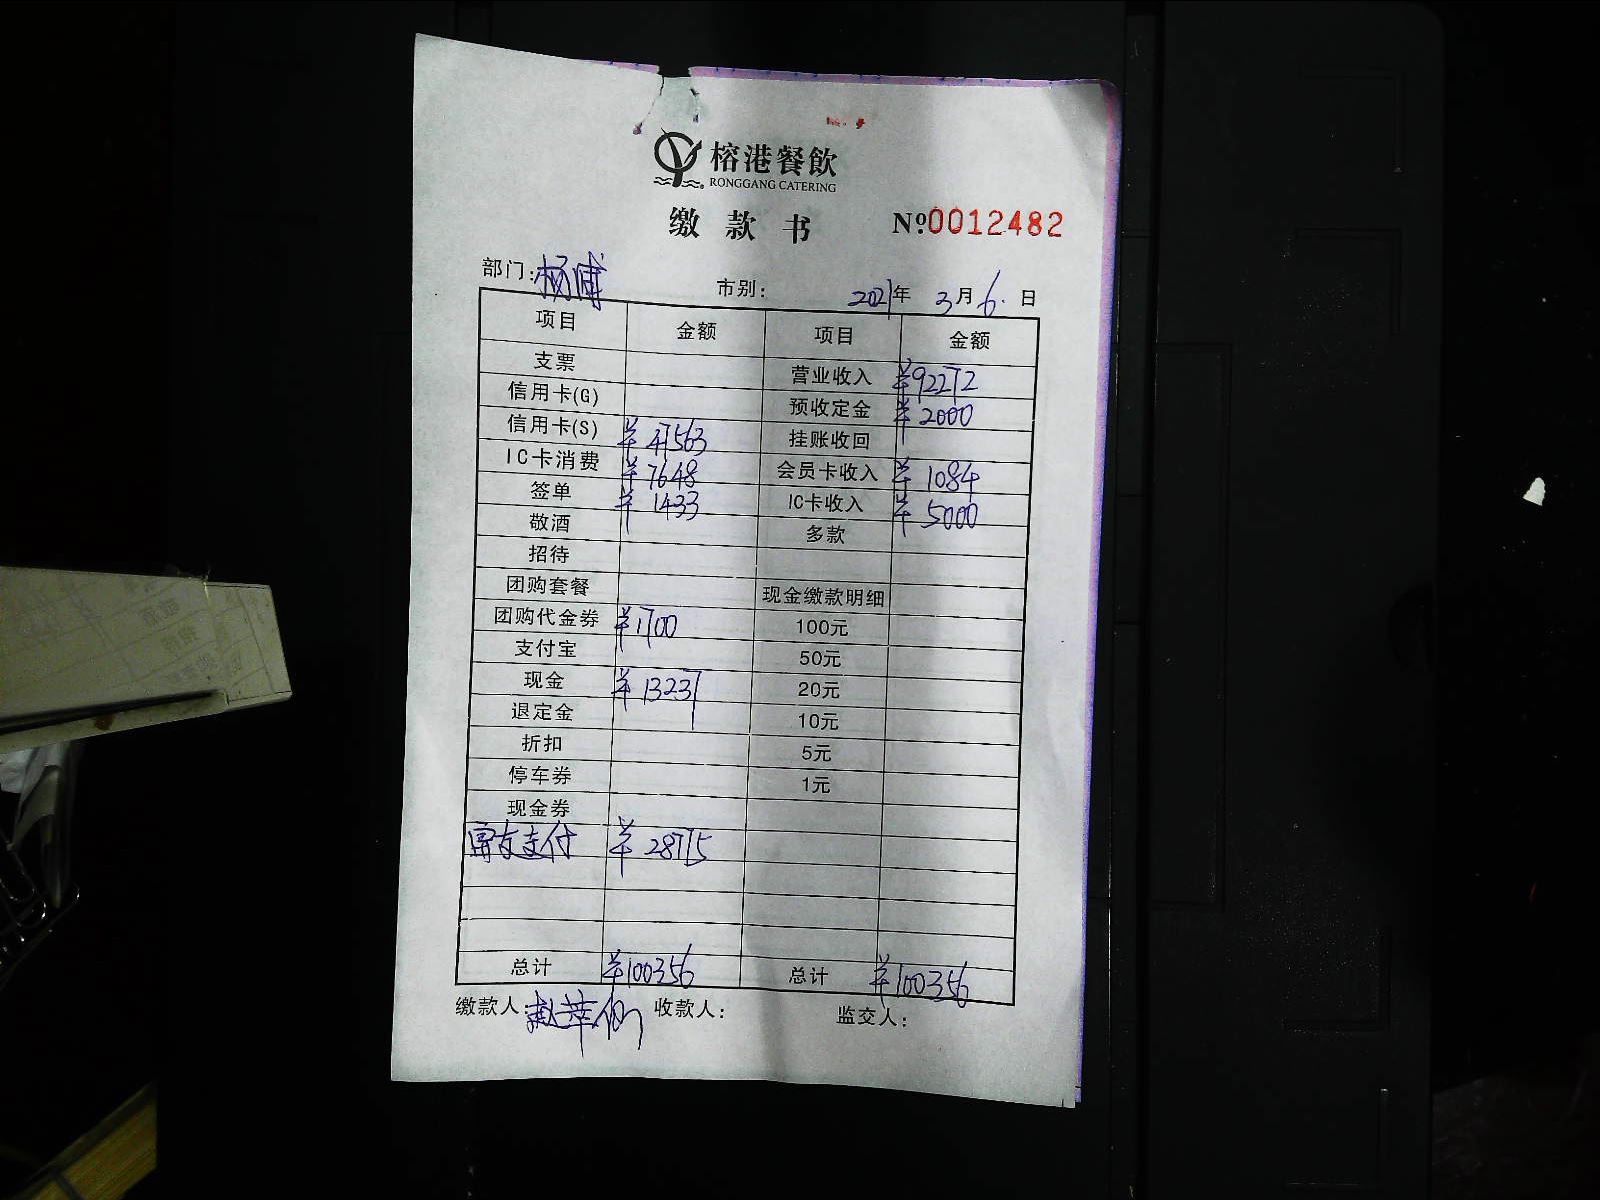 榕港餐飲
RONGGANG CATERING
缴款书 Nº0012482
部门:杨浦 市别: 2021年3月6日
项目 金额 项目 金额
支票 营业收入 ¥92272
信用卡(G) 预收定金 ¥2000
信用卡(S) ¥47563 挂账收回
IC卡消费 ¥7648 会员卡收入 ¥1084
签单 ¥1433 IC卡收入 ¥5000
敬酒 多款
招待
团购套餐 现金缴款明细
团购代金券 ¥1700 100元
支付宝 50元
现金 ¥13237 20元
退定金 10元
折扣 5元
停车券 1元
现金券
富友支付 ¥28775
总计 ¥100356 总计 ¥100356
缴款人: 收款人: 监交人: